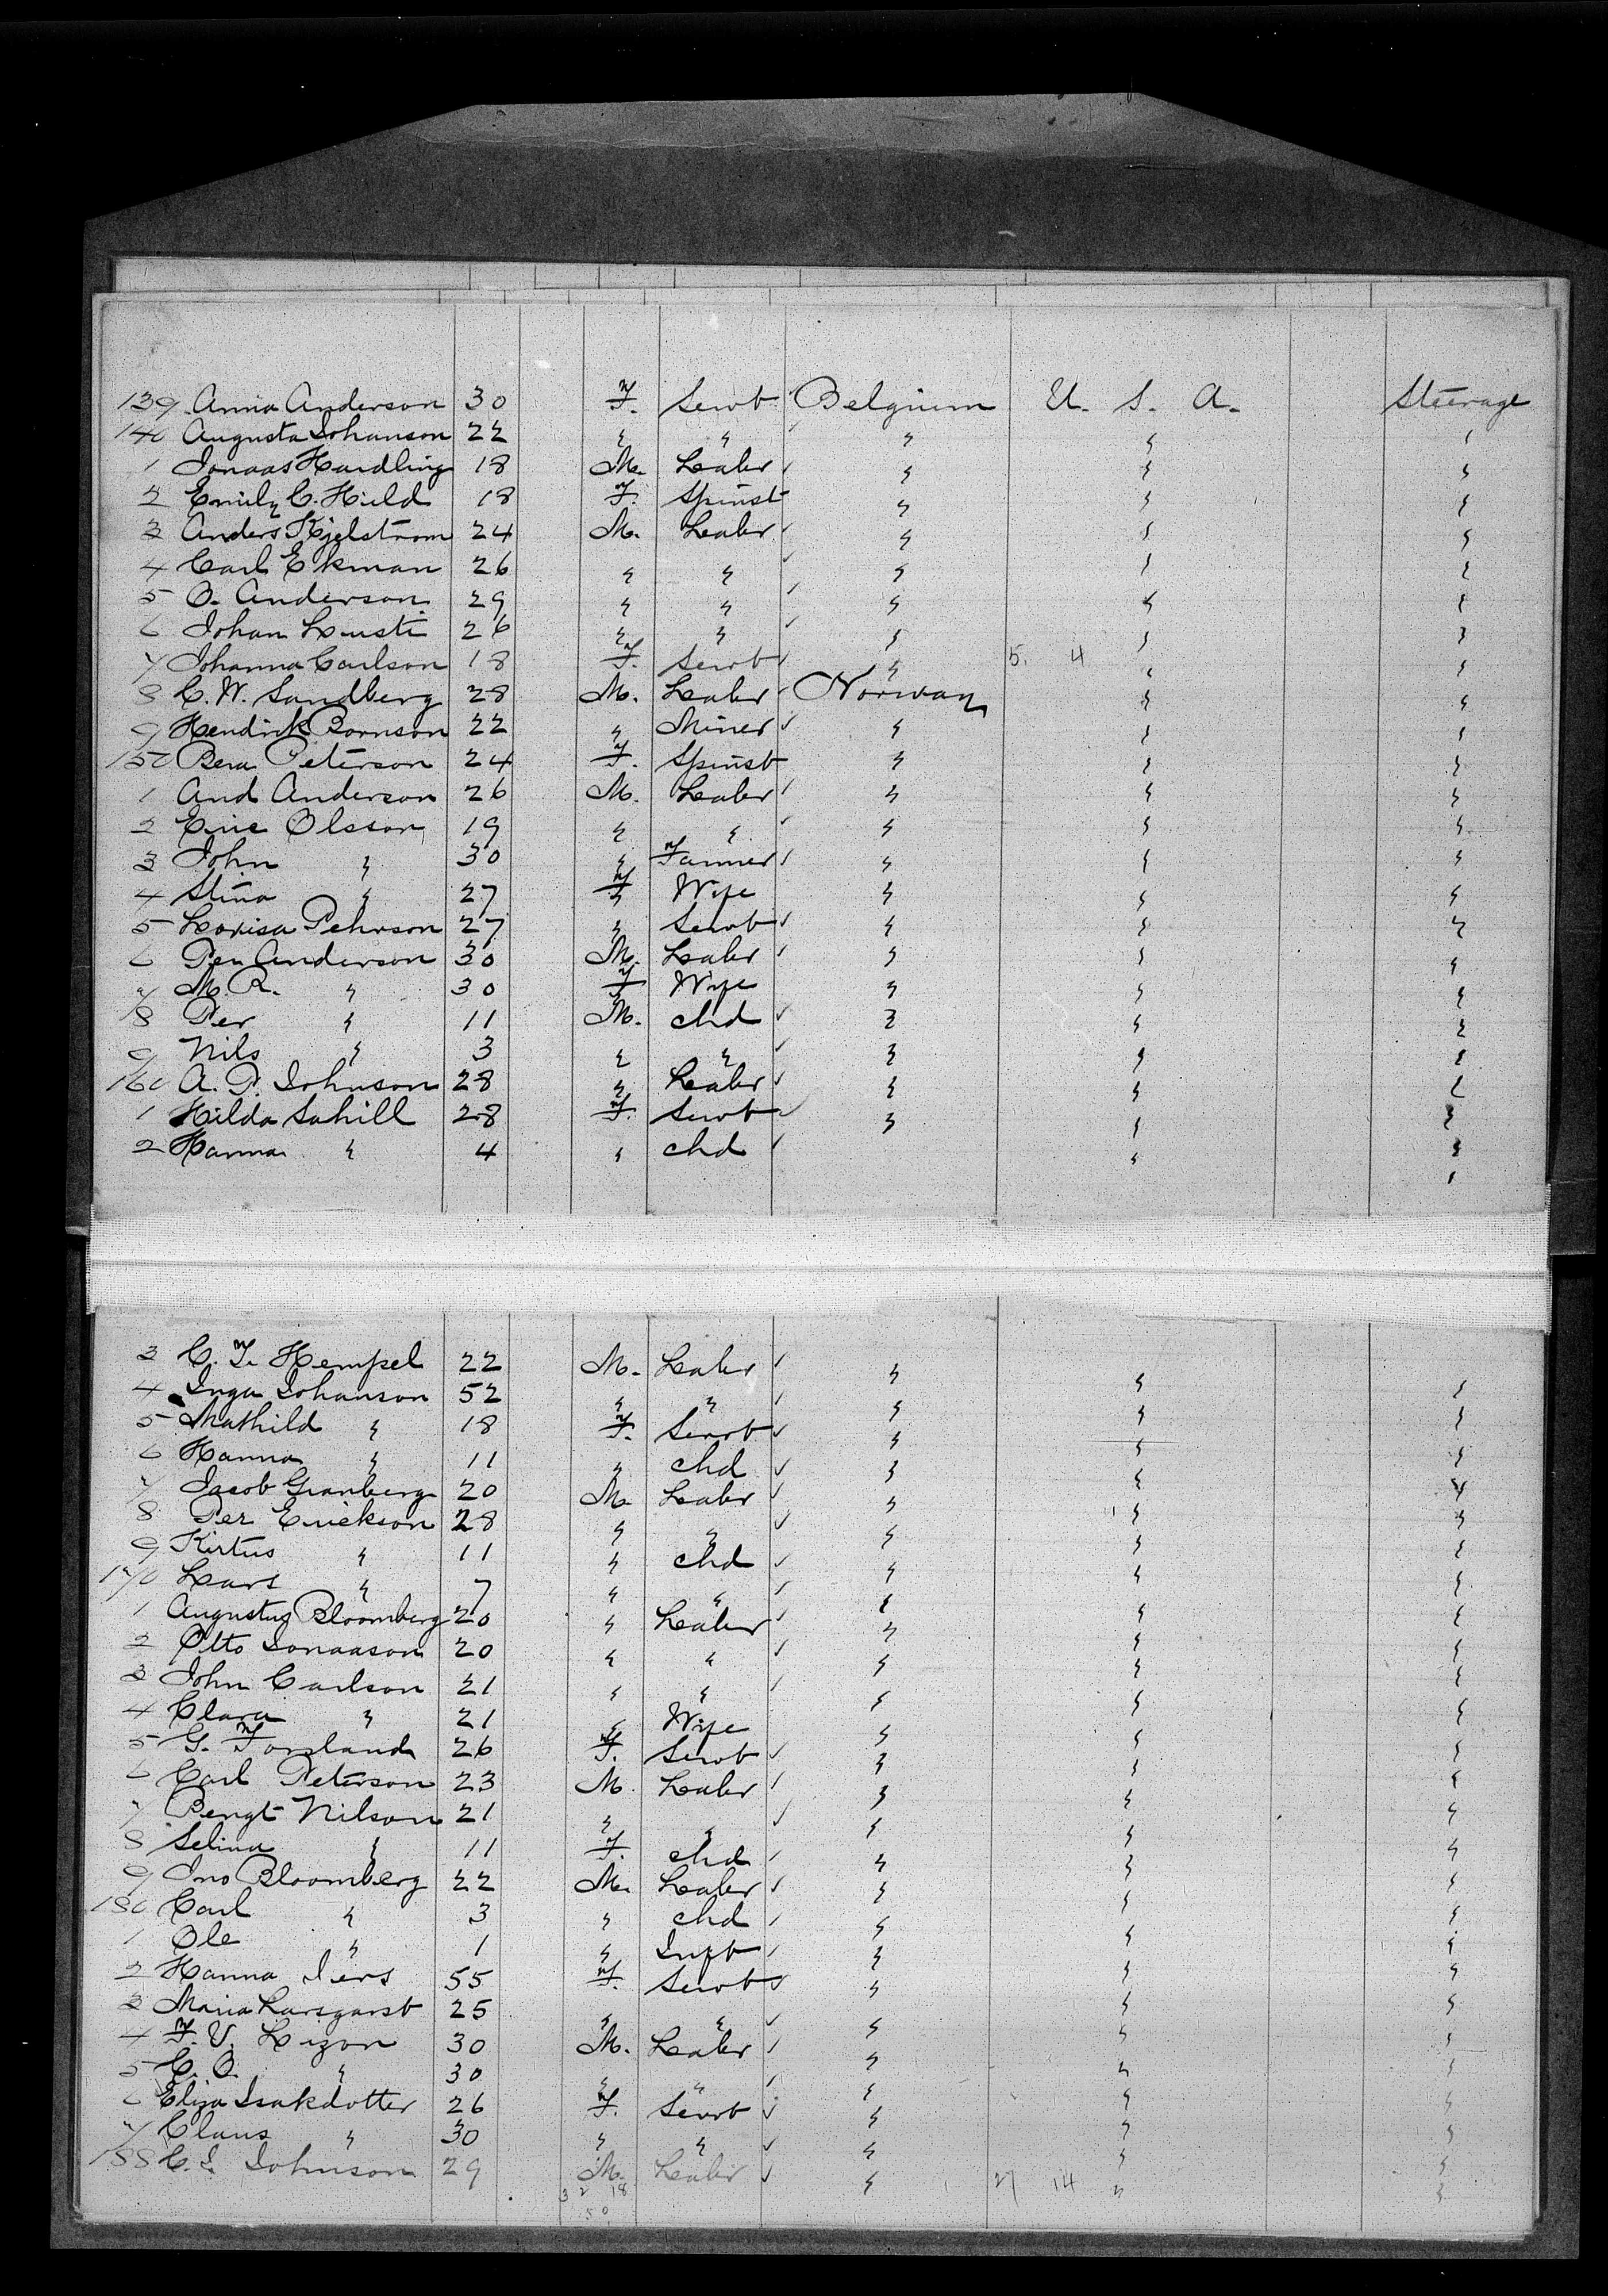 139 Anna Anderson 30 F. Servt Belgium U. S. A. Steerage
140 Augusta Johanson 22 " " " " "
1 Jonaas Hardling 18 M. Labr " " "
2 Emily C. Hild 18 F. Spinst " " "
3 Anders Kjelstrom 24 M. Labr " " "
4 Carl Ekman 26 " " " " "
5 O. Anderson 29 " " " " "
6 Johan 26 " " " " "
7 Johanna Carlson 18 F. Servt " 5. 4 " "
8 C. W. Sandberg 28 M. Labr Norway " "
9 Hendrick Bornson 22 " Miner " " "
150 Bera Peterson 24 F. Spinst " " "
1 And Anderson 26 M. Labr " " "
2 Eric Olsson 19 " " " " "
3 John " 30 " Farmer " " "
4 Stina " 27 F Wife " " "
5 Lovisa Pehrson 27 " Servt " " "
6 Per Anderson 30 M. Labr " " "
7 M. R. " 30 F Wife " " "
8 Per " 11 M. chd " " "
9 Nils " 3 " " " " "
160 A. P. Johnson 28 " Labr " " "
1 Hilda Sahill 28 F. Servt " " "
2 Hanna " 4 " chd " "
3 C. F. Hempel 22 M. Labr " " "
4 Inga Johanson 52 " " " " "
5 Mathild " 18 F. Servt " " "
6 Hanna " 11 " chd " " "
7 Jacob Granberg 20 M Labr " " "
8 Per Erickson 28 " " " " "
9 Kirtus " 11 " chd " " "
170 Lars " 7 " " " " "
1 Augustus Bloomberg 20 " Labr " " "
2 Otto Jonaason 20 " " " " "
3 John Carlson 21 " " " " "
4 Clara " 21 " Wife " " "
5 G. Forsland 26 F. Servt " " "
6 Carl Peterson 23 M. Labr " " "
7 Bengt Nilson 21 " " " " "
8 Selina " 11 F. chd " " "
9 Jno Bloomberg 22 M. Labr " " "
180 Carl " 3 " chd " " "
1 Ole " 1 " Inft " " "
2 Hanna Iers 55 F. Servt " " "
3 Maria 25 " " " " "
4 F. V. 30 M. Labr " " "
5 C. O. " 30 " " " " "
6 Eliza Isakdotter 26 F. Servt " " "
7 Claus " 30 " " " " "
188 C. I. Johnson 29 M. Labr " 27 14 " "
32 18
50